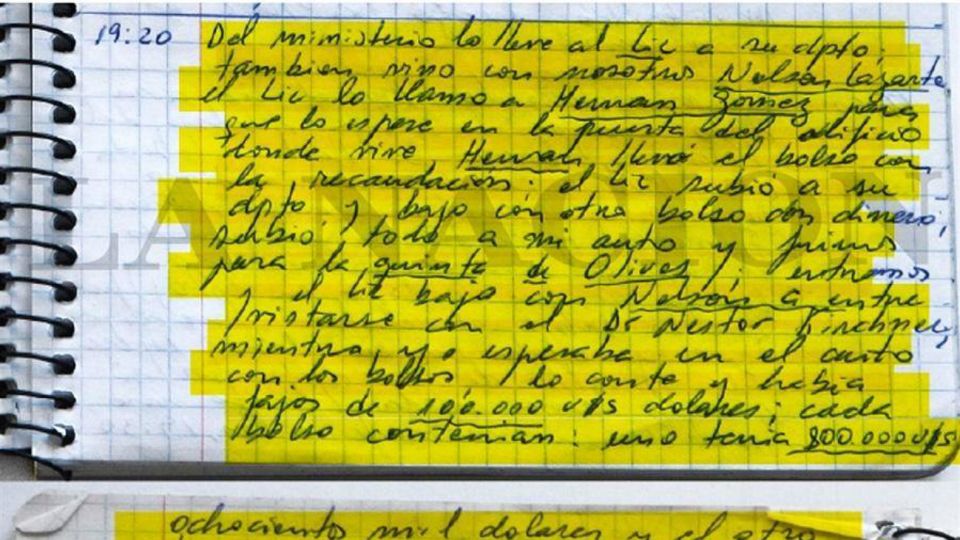 19:20 Del ministerio lo lleve al Lic a su dpto;
tambien vino con nosotros Nelson Lazarte
el Lic lo llamo a Hernan Gomez para
que lo espere en la puerta del edificio
donde vive Hernan, llevó el bolso con
la recaudacion: el Lic subió a su
dpto y bajo con otro bolso con dinero;
subió todo a mi auto y fuimos
para la quinta de Olivos; entramos
y el Lic bajo con Nelson a entre
vistarse con el Dr Nestor Kirchner,
mientras yo esperaba en el auto
con los bolsos, lo conte y habia
fajos de 100.000 U$S dolares; cada
bolso contenian: uno tenia 800.000 U$S
ochociento mil dolares y el otro
LA NACION